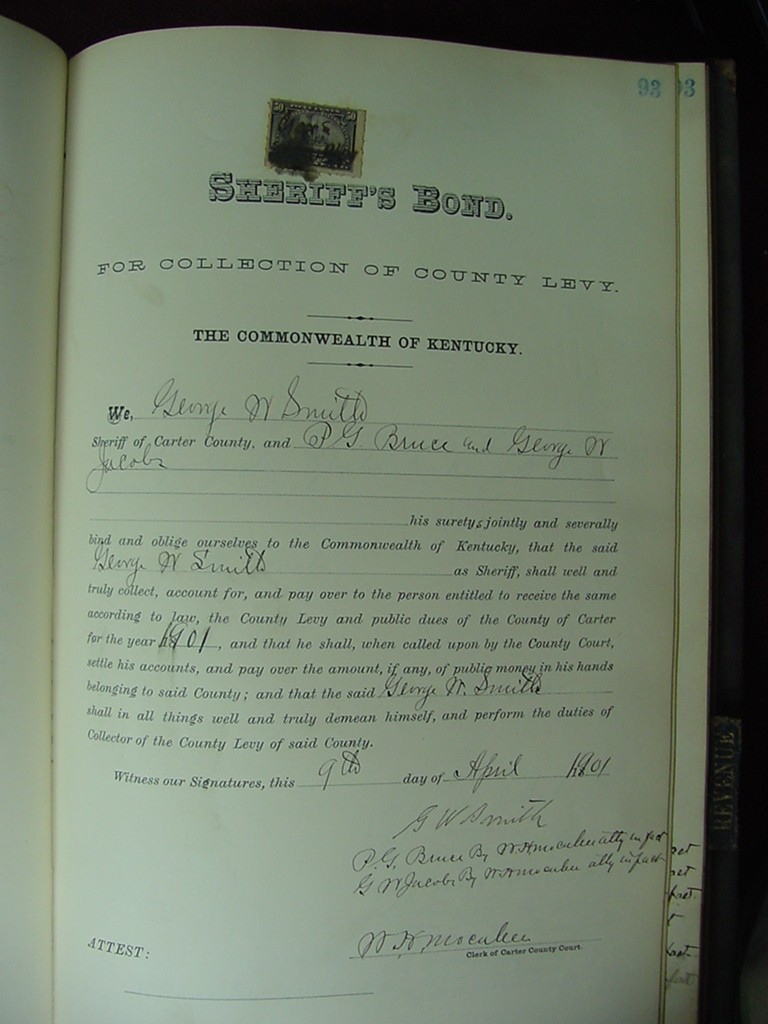 93 93
50 50
SHERIFF'S BOND.
FOR COLLECTION OF COUNTY LEVY.
THE COMMONWEALTH OF KENTUCKY.
We, George W Smith
Sheriff of Carter County, and P G Bruce and George W
Jacobs
his surety s jointly and severally
bind and oblige ourselves to the Commonwealth of Kentucky, that the said
George W Smith as Sheriff, shall well and
truly collect, account for, and pay over to the person entitled to receive the same
according to law, the County Levy and public dues of the County of Carter
for the year 1901, and that he shall, when called upon by the County Court,
settle his accounts, and pay over the amount, if any, of public money in his hands
belonging to said County; and that the said George W. Smith
shall in all things well and truly demean himself, and perform the duties of
Collector of the County Levy of said County.
Witness our Signatures, this 9th day of April 1901
G W Smith
P. G. Bruce By W H Mocabee atty in fact
G W Jacobs By W H Mocabee atty in fact
ATTEST: W. H. Mocabee
Clerk of Carter County Court.
REVENUE